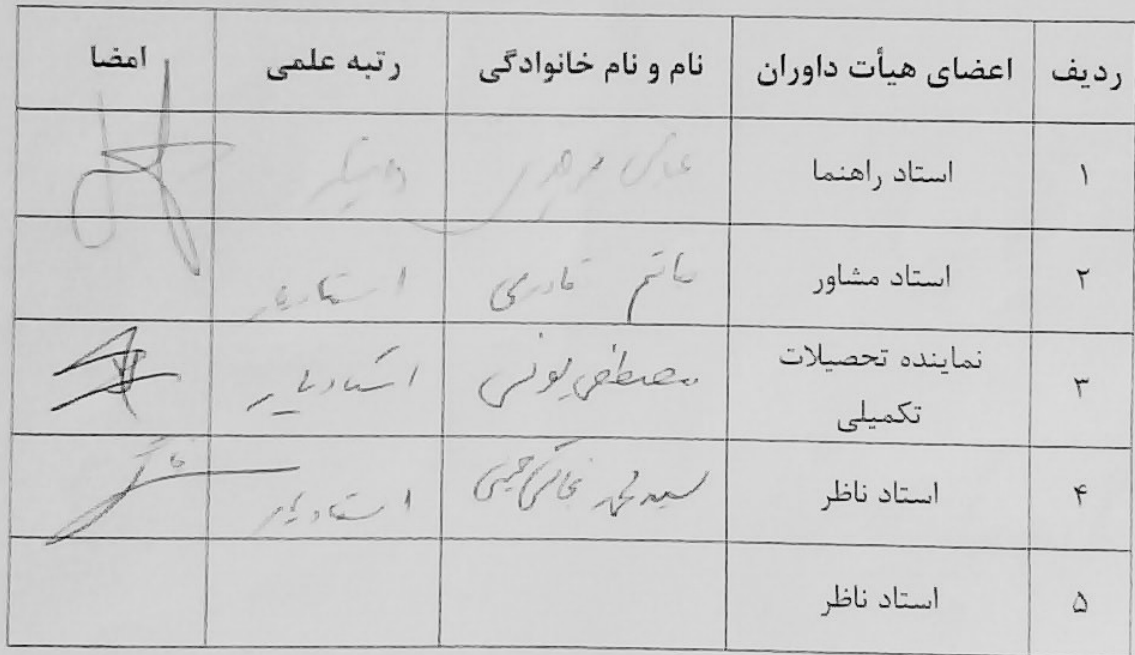 ردیف اعضای هیأت داوران نام و نام خانوادگی رتبه علمی امضا
۱ استاد راهنما
۲ استاد مشاور حاتم قادری استادیار
۳ نماینده تحصیلات تکمیلی مصطفی یونسی استادیار
۴ استاد ناظر سید استادیار
۵ استاد ناظر